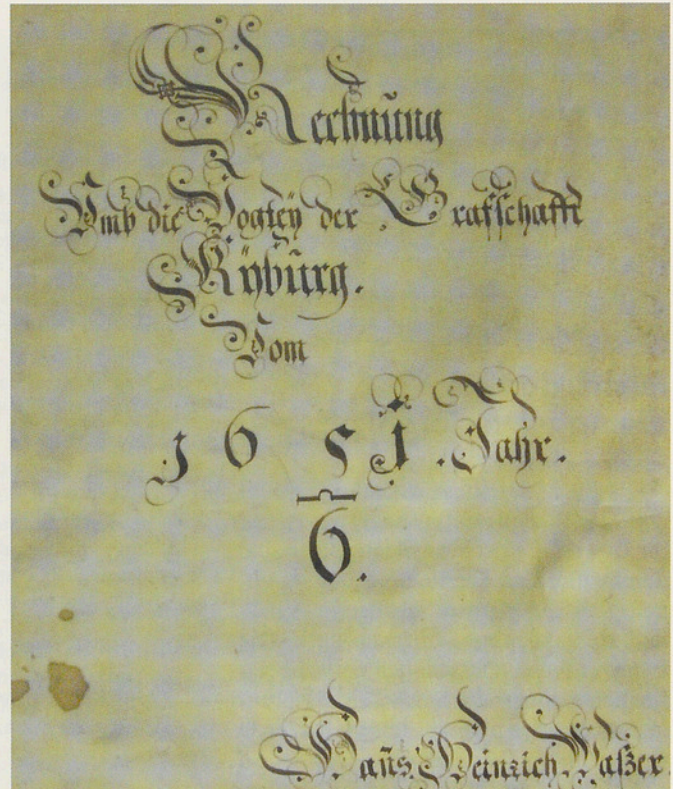 Rechnung
Umb die Vogteÿ der Grafschafft
Kÿburg.
Vom
1651. Jahr.
6.
Hans Heinrich Waßer.